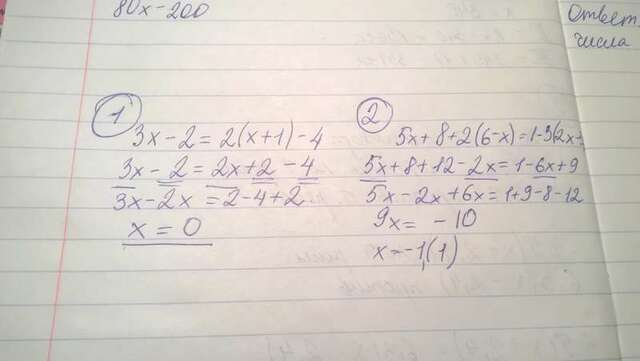 80x-200
Ответ
числа
1
3x-2=2(x+1)-4
3x-2=2x+2-4
3x-2x=2-4+2
x=0
2
5x+8+2(6-x)=1-3(2x+
5x+8+12-2x=1-6x+9
5x-2x+6x=1+9-8-12
9x=-10
x=-1,(1)